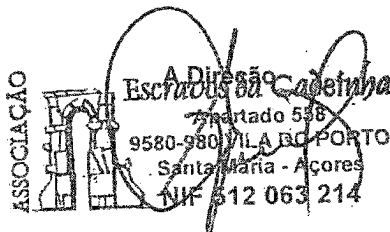 ASSOCIAÇÃO
Escravos da Cadeinha
A Direção
Apartado 538
9580-980 VILA DO PORTO
Santa Maria - Açores
NIF 512 063 214